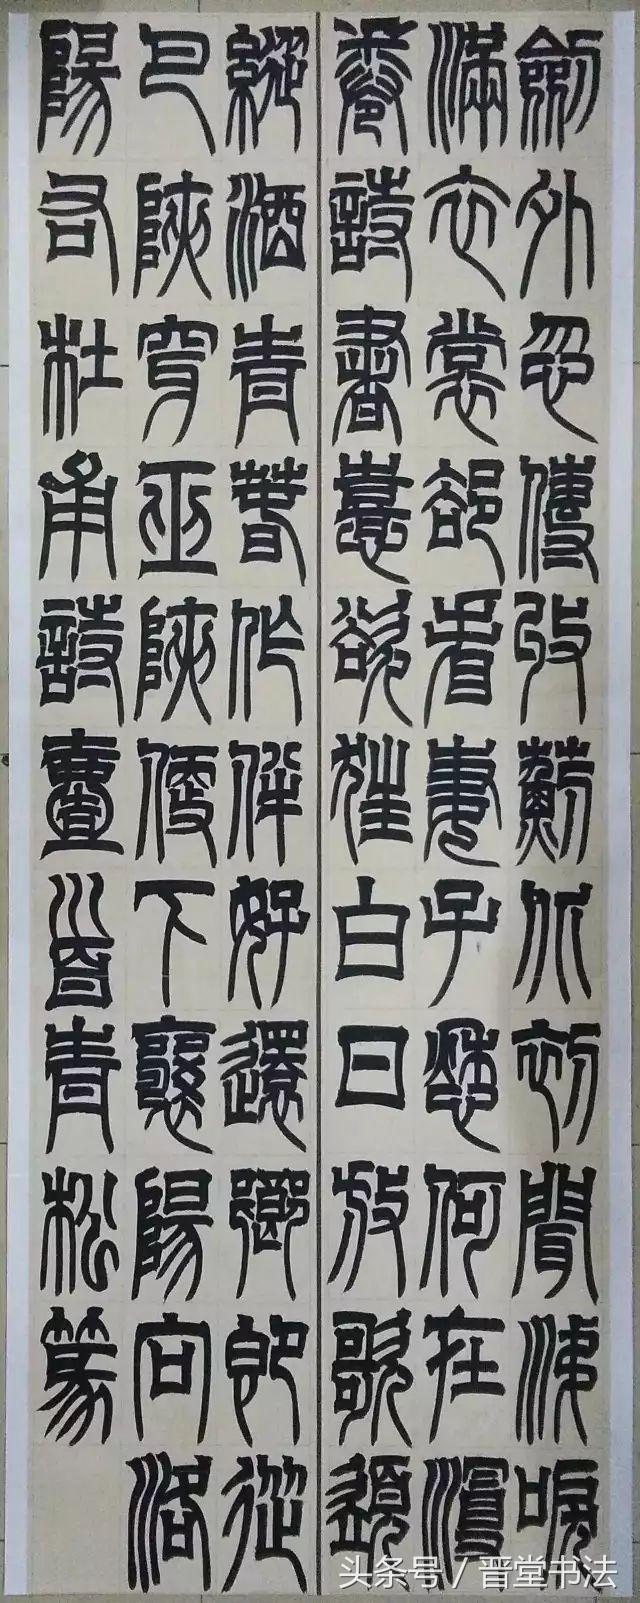 劍外忽傳收薊北初聞涕唳
滿衣裳卻看妻子愁何在漫
卷詩書喜欲狂白日放歌須
縱酒青春作伴好還鄉即從
巴陜穿巫陜便下襄陽向洛
陽右杜甫詩壹首青松篆
头条号 / 晋堂书法